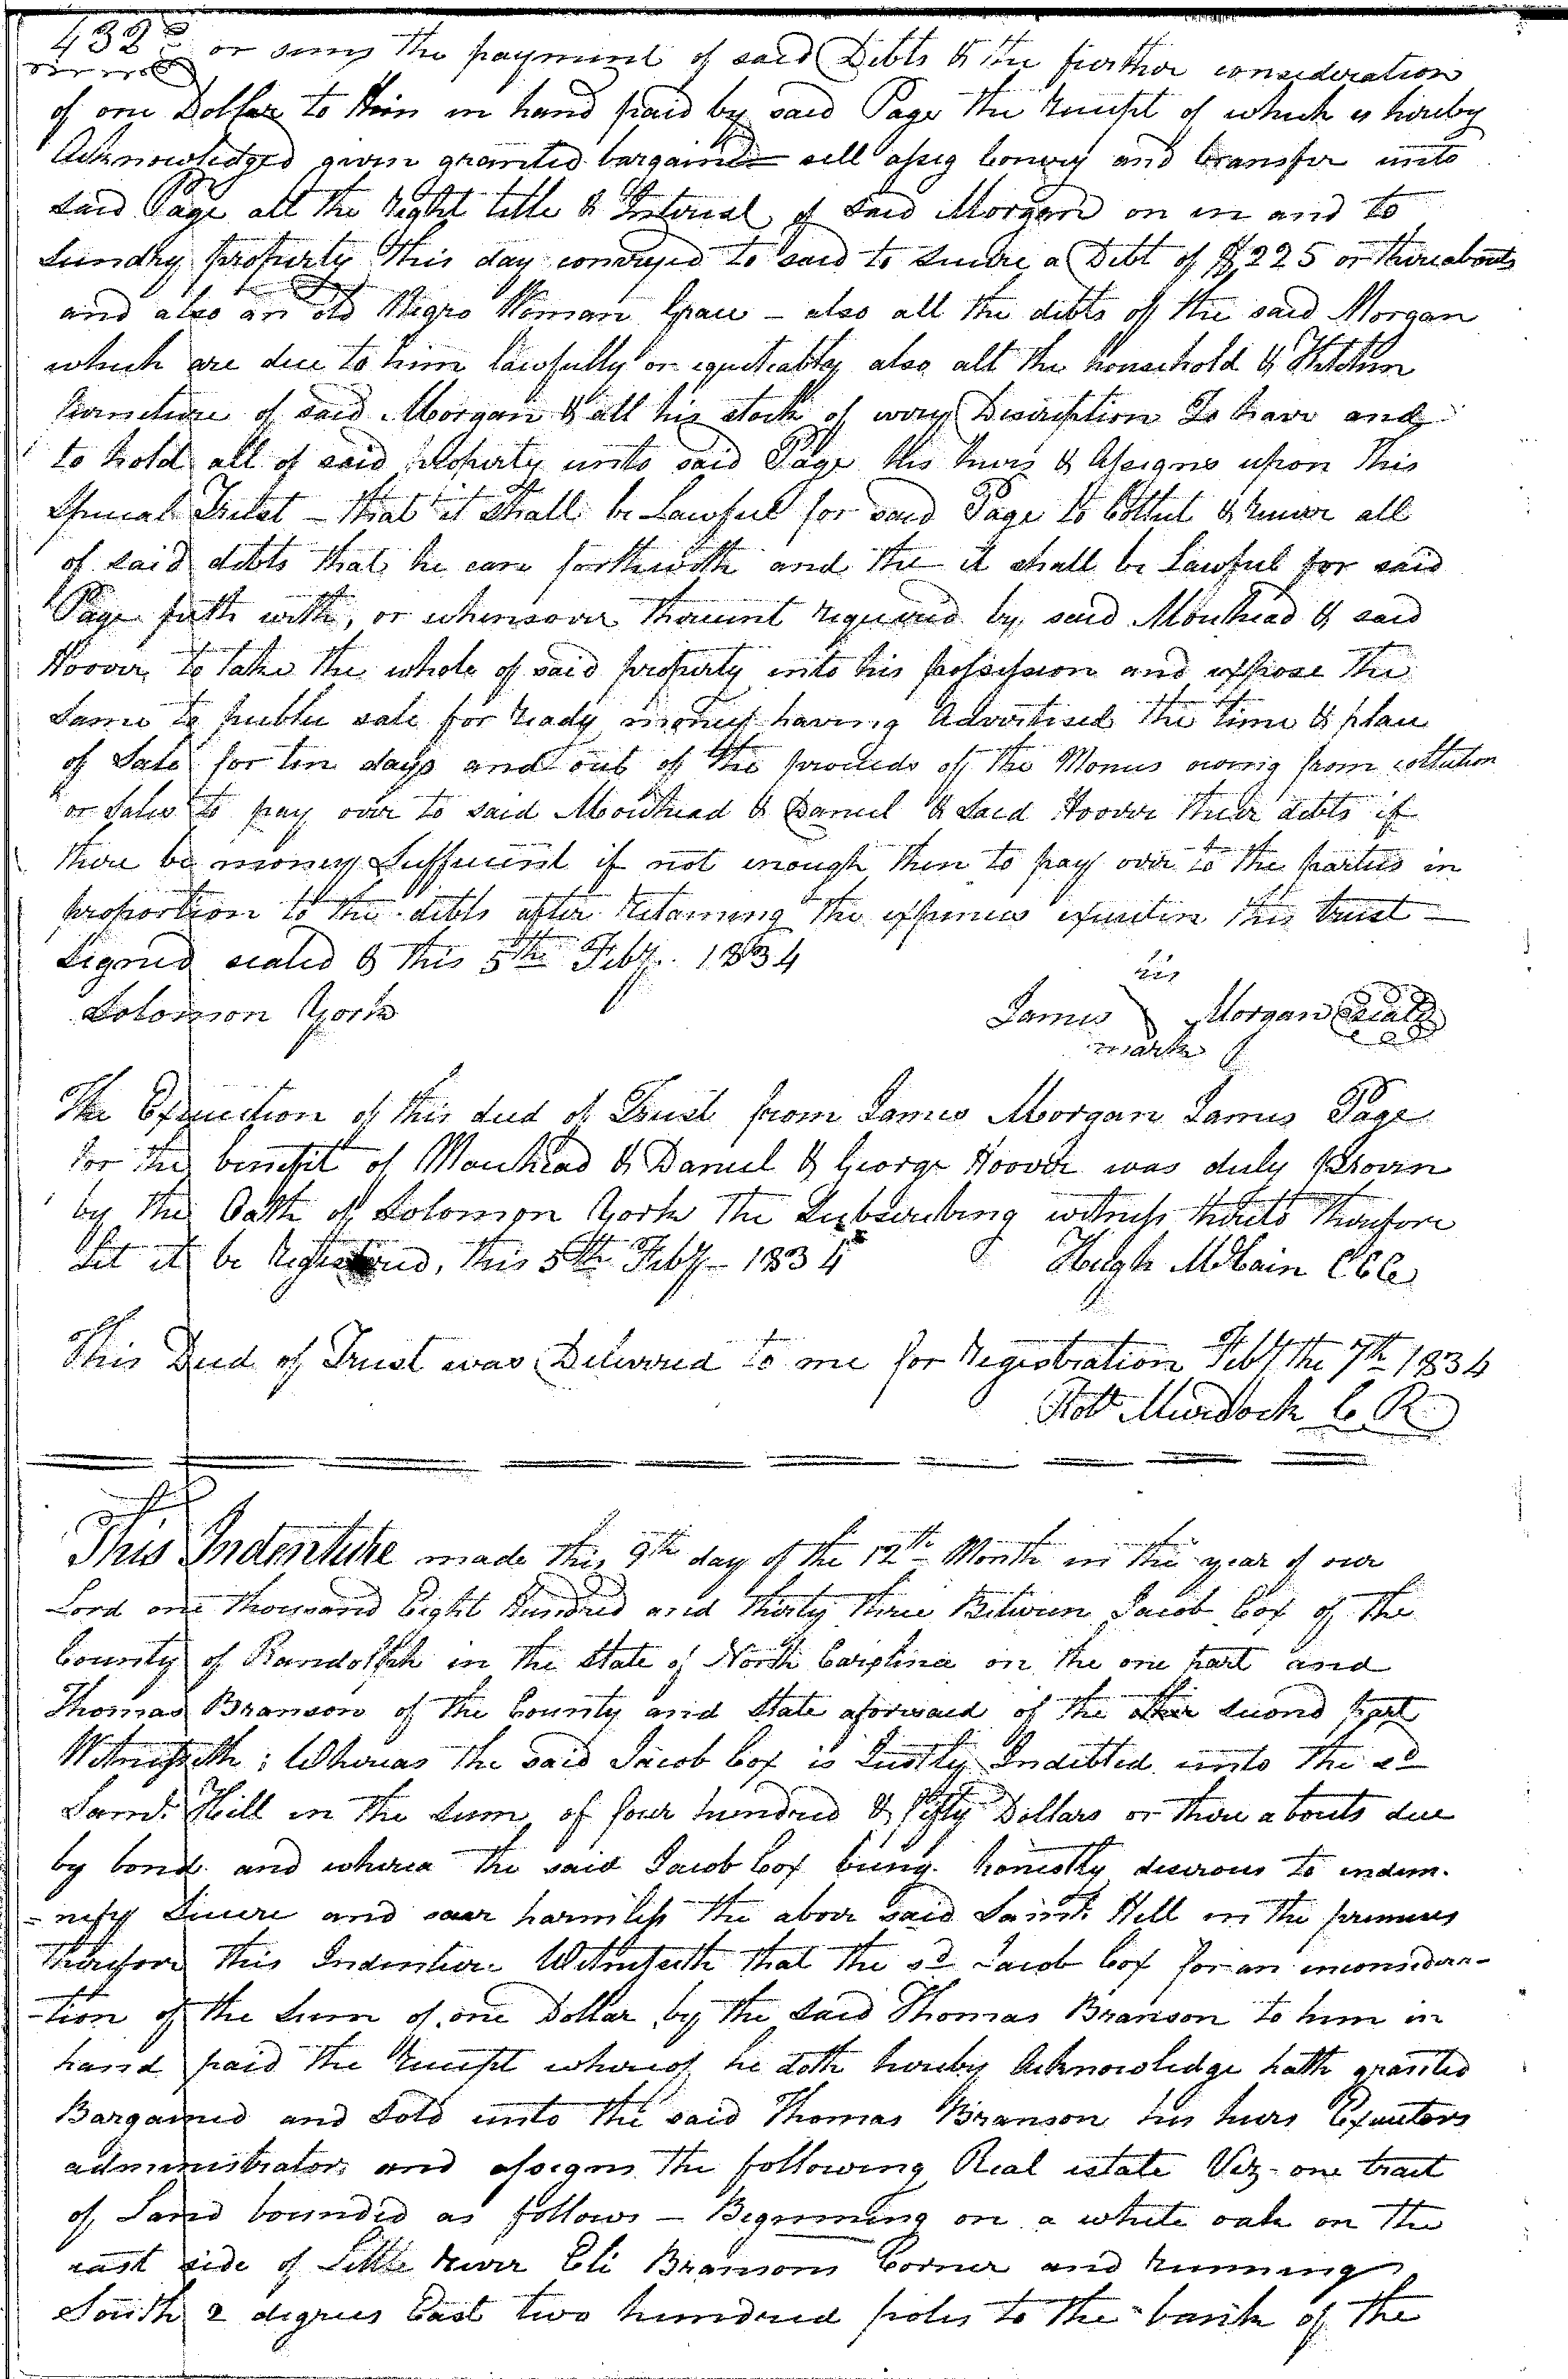 432 or sums the payment of said Debts & the further consideration
of one Dollar to Him in hand paid by said Page the Receipt of which is hereby
Acknowledged given granted bargained sell assig Convey and transfer unto
Said Page all the Right title & Interest of Said Morgan on in and to
Sundry property this day conveyed to said to Secure a Debt of $225 or thereabouts
and also an old Negro Woman Grace – also all the debts of the said Morgan
which are due to him lawfully or equitably also all the household & Kitchen
furniture of said Morgan & all his stock of every Description To have and
to hold all of said property unto said Page his heirs & Assigns upon this
Special Trust – that it Shall be Lawful for said Page to Collect & receive all
of said debts that he can forthwith and the it shall be Lawful for said
Page forth with, or whensoever thereunt required by said Mouhead & said
Hoover to take the whole of said property into his possession and expose the
Same to public sale for Ready money having Advertised the time & place
of Sale for ten days and out of the proceeds of the Monies from collection
or Sales to pay over to said Mouhead & Daniel & Said Hoover their debts if
there be money Sufficient if not enough then to pay over to the parties in
proportion to the debts after Retaining the expences this trust –
Signed sealed & this 5th Feby. 1834
his
Solomon York James Morgan Seal
mark
The Execution of this deed of Trust from James Morgan James Page
for the benefit of Mouhead & Daniel & George Hoover was duly Proven
by the Oath of Solomon York the Subscribing witness thereto therefore
Let it be Registered, this 5th Feby – 1834 Hugh McCain CCC
This Deed of Trust was Delivered to me for Registration Feby the 7th 1834
Robt Murdock C. R.
This Indenture made this 9th day of the 12th Month in the year of our
Lord one thousand Eight Hundred and thirty three Between Jacob Cox of the
County of Randolph in the State of North Carolina on the one part and
Thomas Branson of the County and State aforesaid of the other second part
Witnesseth: Whereas the said Jacob Cox is Justly Indebted unto the sd
Saml. Hill in the Sum of four hundred & fifty Dollars or there abouts due
by bond. and wherea the said Jacob Cox being honestly desirous to indem-
-nify Secure and save harmless the above said Saml. Hill in the premises
therefore this Indenture Witnesseth that the sd Jacob Cox for an inconsidera-
-tion of the Sum of one Dollar by the Said Thomas Branson to him in
hand paid the Receipt whereof he doth hereby Acknowledge hath granted
Bargained and Sold unto the said Thomas Branson his heirs Executors
administrators and assigns the following Real estate Viz – one tract
of Land bounded as follows – Beginning on a white oak on the
east side of Little River Eli Bransons Corner and Running
South 2 degrees East two hundred poles to the bank of the